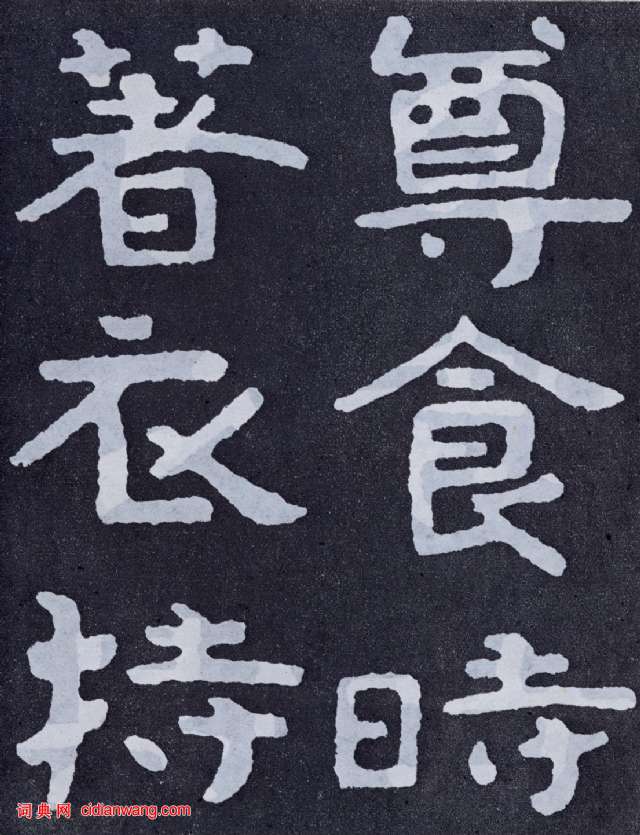 尊食時
著衣持
词典网 cidianwang.com